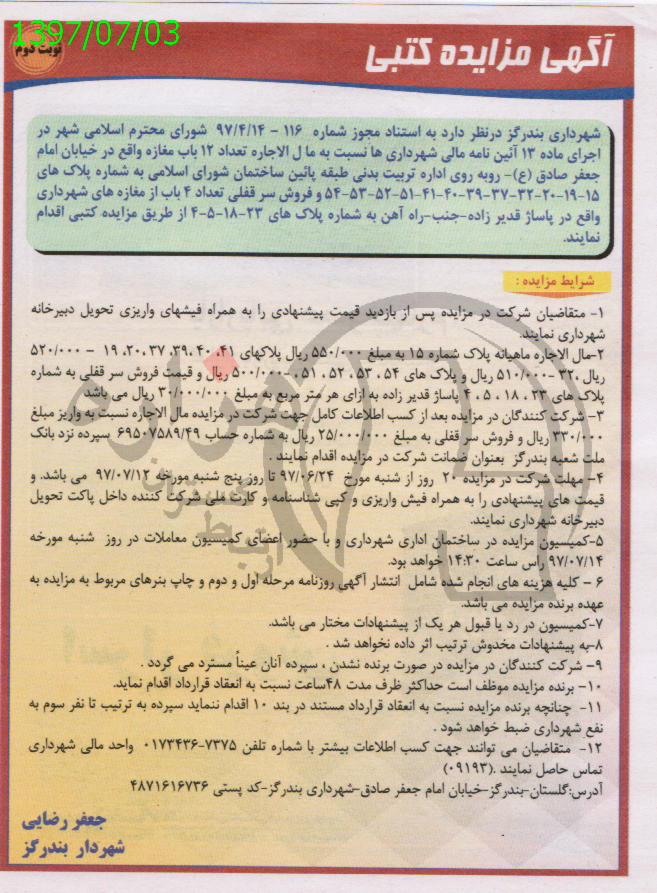 1397/07/03
نوبت دوم
آگهی مزایده کتبی
شهرداری بندرگز درنظر دارد به استناد مجوز شماره ۱۱۶ - ۹۷/۴/۱۴ شورای محترم اسلامی شهر در
اجرای ماده ۱۳ آئین نامه مالی شهرداری ها نسبت به ما ل الاجاره تعداد ۱۲ باب مغازه واقع در خیابان امام
جعفر صادق (ع)- روبه روی اداره تربیت بدنی طبقه پائین ساختمان شورای اسلامی به شماره پلاک های
۱۵-۱۹-۲۰-۳۲-۳۷-۳۹-۴۰-۴۱-۵۱-۵۲-۵۳-۵۴ و فروش سر قفلی تعداد ۴ باب از مغازه های شهرداری
واقع در پاساژ قدیر زاده-جنب-راه آهن به شماره پلاک های ۲۳-۱۸-۵-۴ از طریق مزایده کتبی اقدام
نمایند.
شرایط مزایده :
۱- متقاضیان شرکت در مزایده پس از بازدید قیمت پیشنهادی را به همراه فیشهای واریزی تحویل دبیرخانه
شهرداری نمایند.
۲-مال الاجاره ماهیانه پلاک شماره ۱۵ به مبلغ ۵۵۰/۰۰۰ ریال پلاکهای ۴۱، ۴۰ ،۳۹، ۳۷ ،۲۰، ۱۹ - ۵۲۰/۰۰۰
ریال ،۳۲ -۵۱۰/۰۰۰ ریال و پلاک های ۵۴ ، ۵۳ ، ۵۲ ، ۵۱ ،-۵۰۰/۰۰۰ ریال و قیمت فروش سر قفلی به شماره
پلاک های ۲۳ ، ۱۸ ، ۵ ، ۴ پاساژ قدیر زاده به ازای هر متر مربع به مبلغ ۳۰/۰۰۰/۰۰۰ ریال می باشد
۳- شرکت کنندگان در مزایده بعد از کسب اطلاعات کامل جهت شرکت در مزایده مال الاجاره نسبت به واریز مبلغ
۳۳۰/۰۰۰ ریال و فروش سر قفلی به مبلغ ۲۵/۰۰۰/۰۰۰ ریال به شماره حساب ۶۹۵۰۷۵۸۹/۴۹ سپرده نزد بانک
ملت شعبه بندرگز بعنوان ضمانت شرکت در مزایده اقدام نمایند .
۴- مهلت شرکت در مزایده ۲۰ روز از شنبه مورخ ۹۷/۰۶/۲۴ تا روز پنج شنبه مورخه ۹۷/۰۷/۱۲ می باشد. و
قیمت های پیشنهادی را به همراه فیش واریزی و کپی شناسنامه و کارت ملی شرکت کننده داخل پاکت تحویل
دبیرخانه شهرداری نمایند.
۵-کمیسیون مزایده در ساختمان اداری شهرداری و با حضور اعضای کمیسیون معاملات در روز شنبه مورخه
۹۷/۰۷/۱۴ رأس ساعت ۱۴:۳۰ خواهد بود.
۶ - کلیه هزینه های انجام شده شامل انتشار آگهی روزنامه مرحله اول و دوم و چاپ بنرهای مربوط به مزایده به
عهده برنده مزایده می باشد.
۷-کمیسیون در رد یا قبول هر یک از پیشنهادات مختار می باشد.
۸-به پیشنهادات مخدوش ترتیب اثر داده نخواهد شد .
۹- شرکت کنندگان در مزایده در صورت برنده نشدن ، سپرده آنان عیناً مسترد می گردد .
۱۰- برنده مزایده موظف است حداکثر ظرف مدت ۴۸ساعت نسبت به انعقاد قرارداد اقدام نماید.
۱۱- چنانچه برنده مزایده نسبت به انعقاد قرارداد مستند در بند ۱۰ اقدام ننماید سپرده به ترتیب تا نفر سوم به
نفع شهرداری ضبط خواهد شود .
۱۲- متقاضیان می توانند جهت کسب اطلاعات بیشتر با شماره تلفن ۷۳۷۵-۰۱۷۳۴۳۶ واحد مالی شهرداری
تماس حاصل نمایند .(۰۹۱۹۳)
آدرس:گلستان-بندرگز-خیابان امام جعفر صادق-شهرداری بندرگز-کد پستی ۴۸۷۱۶۱۶۷۳۶
جعفر رضایی
شهردار بندرگز